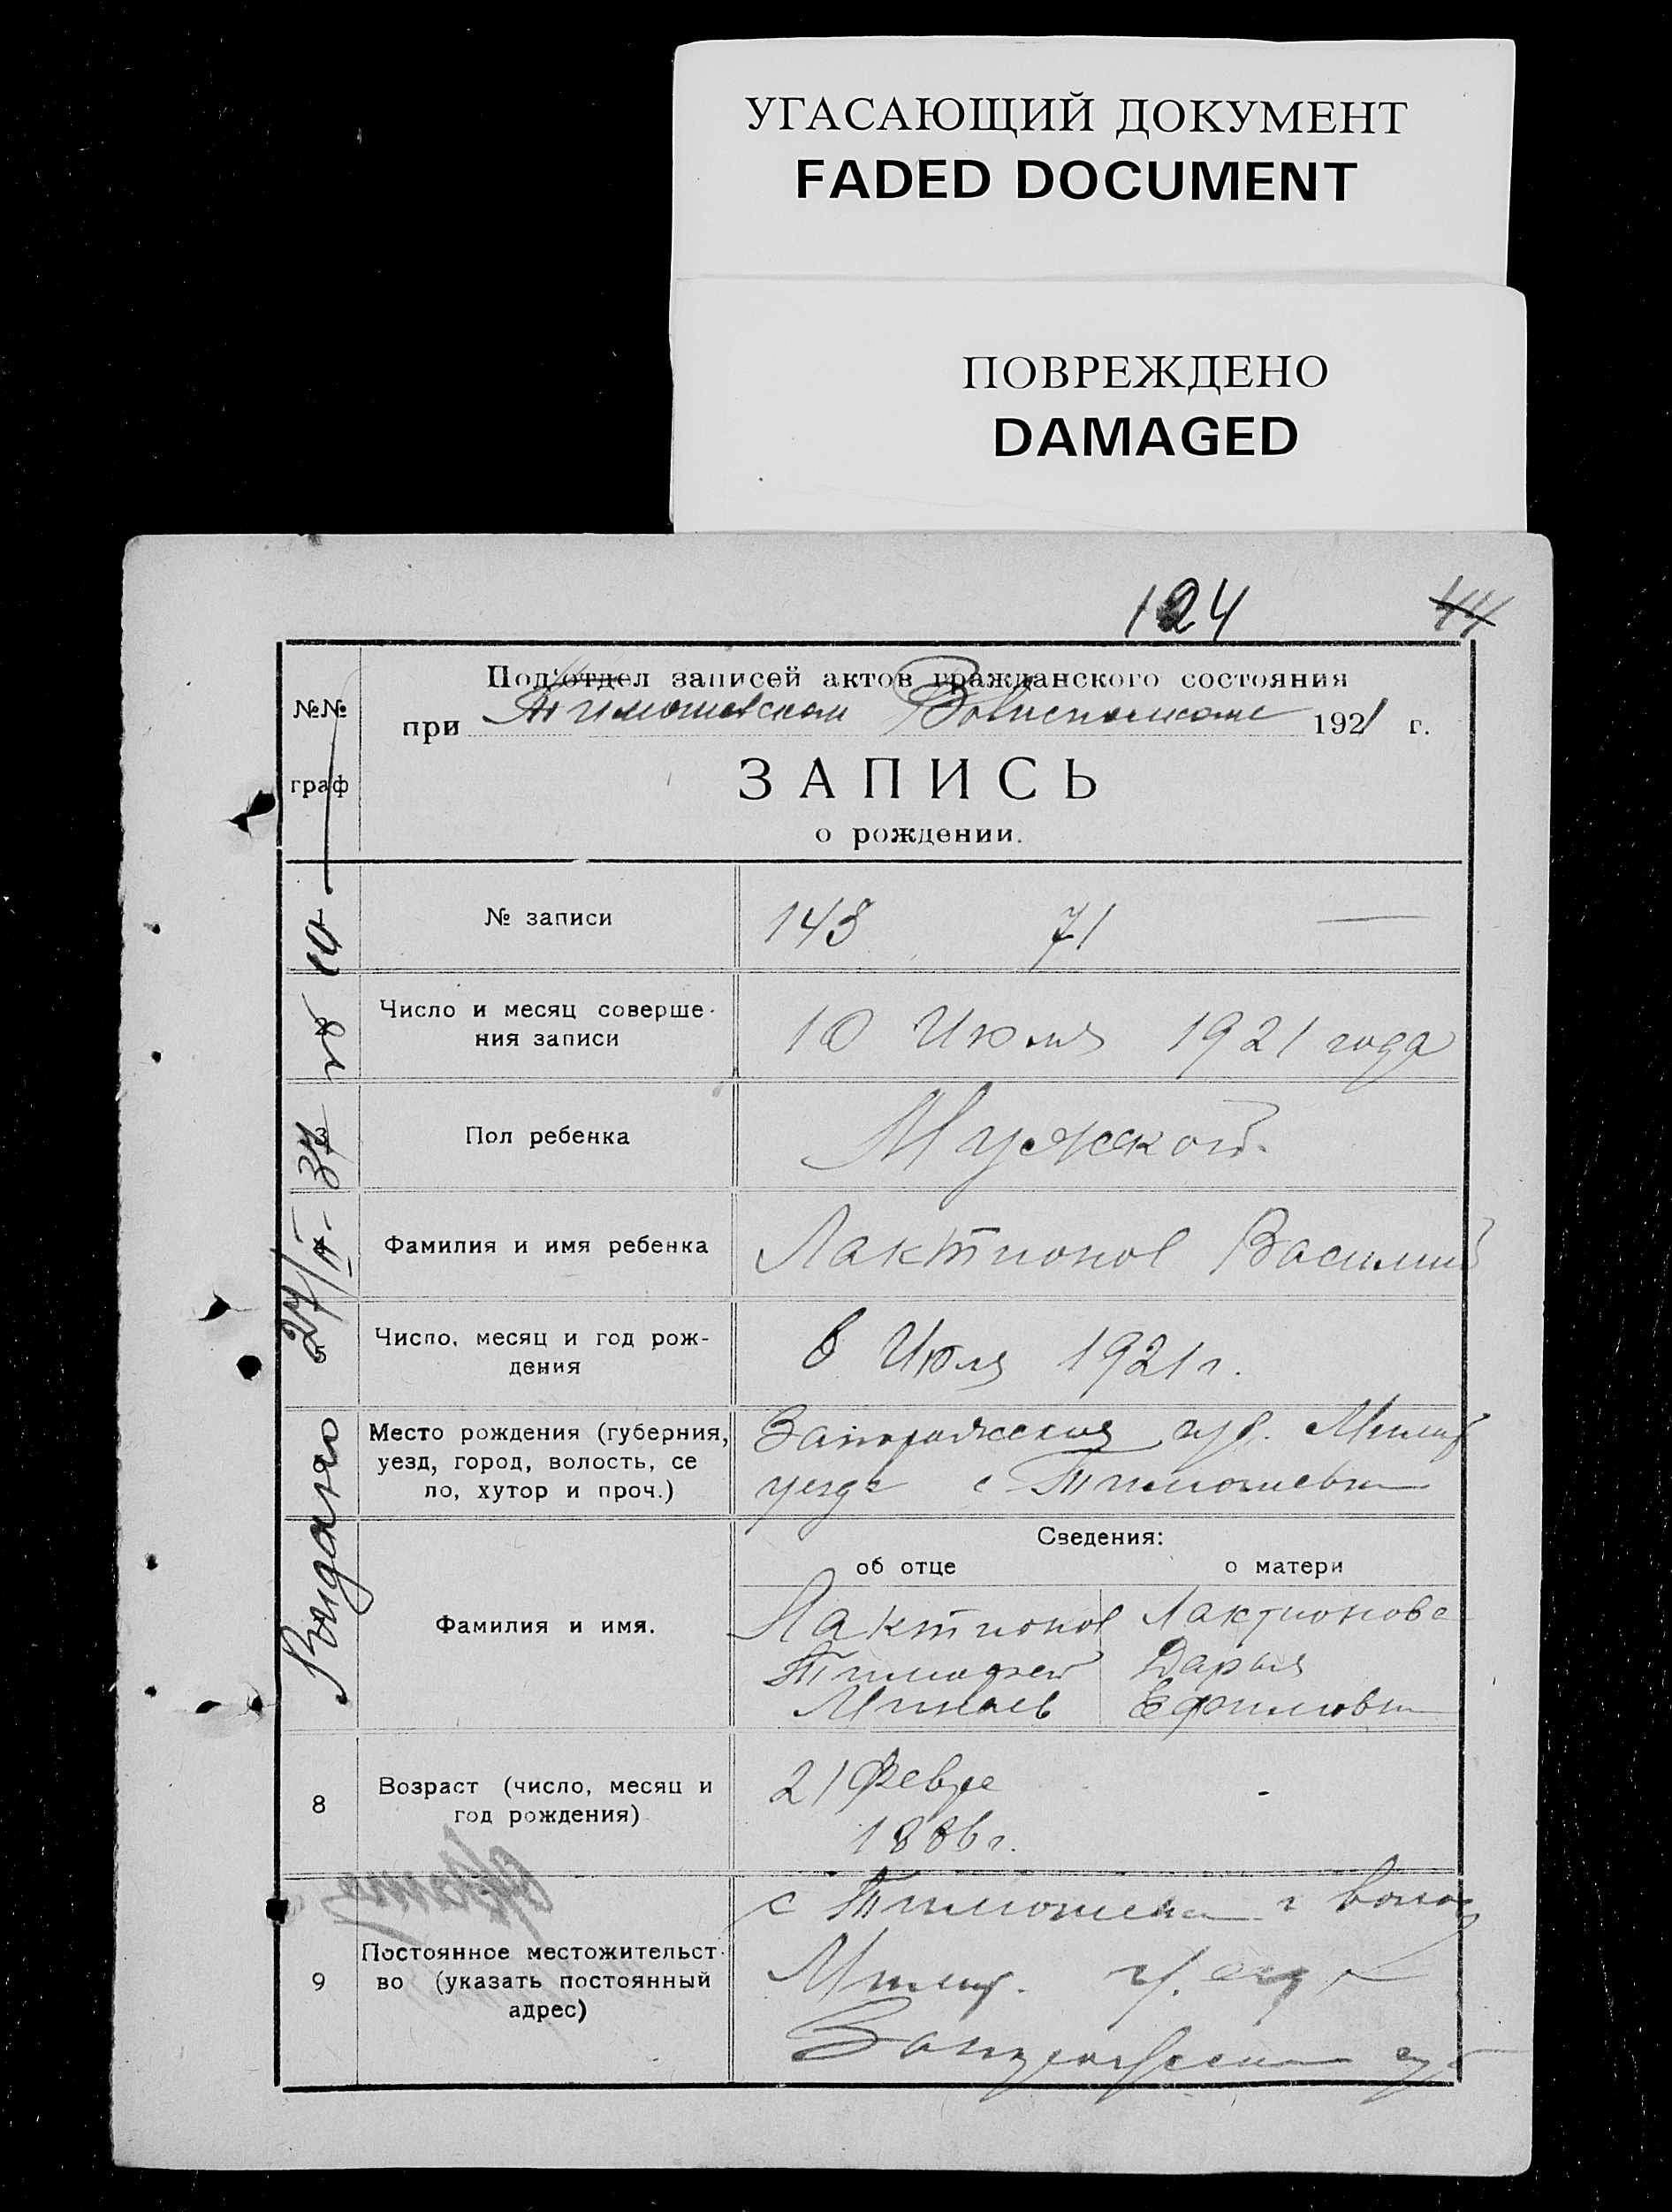 УГАСАЮЩИЙ ДОКУМЕНТ
FADED DOCUMENT
ПОВРЕЖДЕНО
DAMAGED
124 44
№№
граф
Под'отдел записей актов гражданского состояния
при Тимошевском Волисполкоме 1921 г.
ЗАПИСЬ
о рождении.
№ записи 143 71
Число и месяц соверше-
ния записи
10 Июля 1921 года
Пол ребенка Мужской.
Фамилия и имя ребенка Лактионов Василий
Число, месяц и год рож-
дения
6 Июля 1921 г.
Место рождения (губерния,
уезд, город, волость, се
ло, хутор и проч.)
Запорожская губ. Мелит
уезда с Тимошевка
Сведения:
об отце о матери
Фамилия и имя.
Лактионов
Тимофей
Минаев
Лактионова
Дарья
Ефимовна
8 Возраст (число, месяц и
год рождения)
21 Февра
1886 г.
9 Постоянное местожительст-
во (указать постоянный
адрес)
с Тимошевка
Мелит. уезда
Запорожской губ
Выдано
27/II-37
10